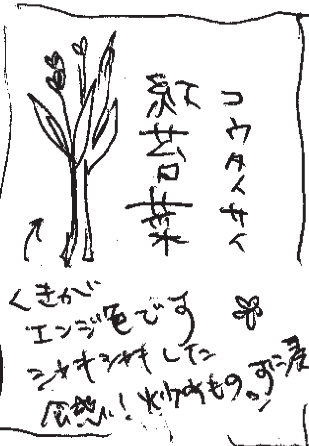 コウタイサイ
紅苔菜
くきが
エンジ色です
シャキシャキした
食感！炒めもの、ずに漬